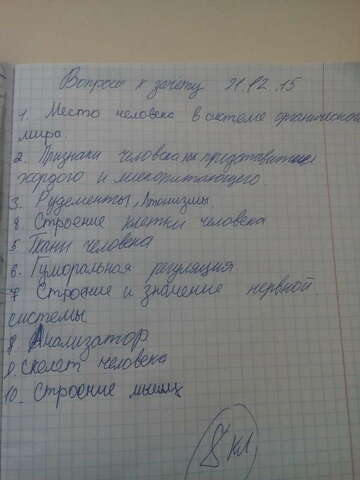 Вопросы к зачету 21.12.15
1. Место человека в системе органического
мира
2. Признаки человека как представителя
хордого и млекопитающего
3. Рудементы, Атонизмы.
4. Строение клетки человека
5 Ткани человека
6. Гуморальная регуляция
7 Строение и значение нервной
системы
8 Анализатор
9. Скелет человека
10. Строение мышц
8 кл